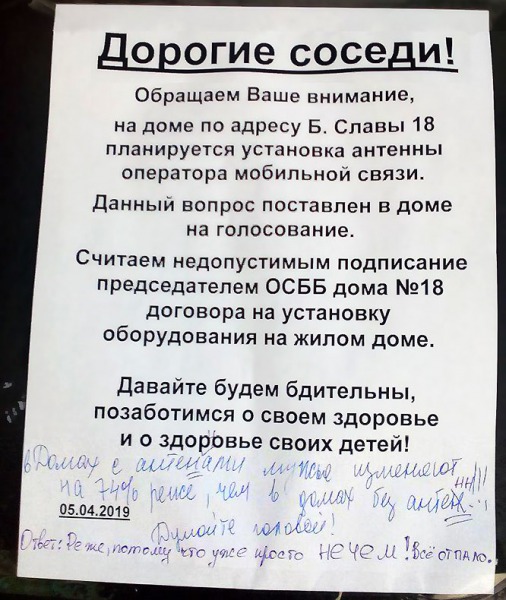 Дорогие соседи!
Обращаем Ваше внимание,
на доме по адресу Б. Славы 18
планируется установка антенны
оператора мобильной связи.
Данный вопрос поставлен в доме
на голосование.
Считаем недопустимым подписание
председателем ОСББ дома №18
договора на установку
оборудования на жилом доме.
Давайте будем бдительны,
позаботимся о своем здоровье
и о здоровье своих детей!
в Домах с антенами мужья изменяют
на 74% реже, чем в домах без антенн!!!
05.04.2019
Думайте головой!
Ответ: Реже, потому что уже просто НЕЧЕМ! Всё отпало.